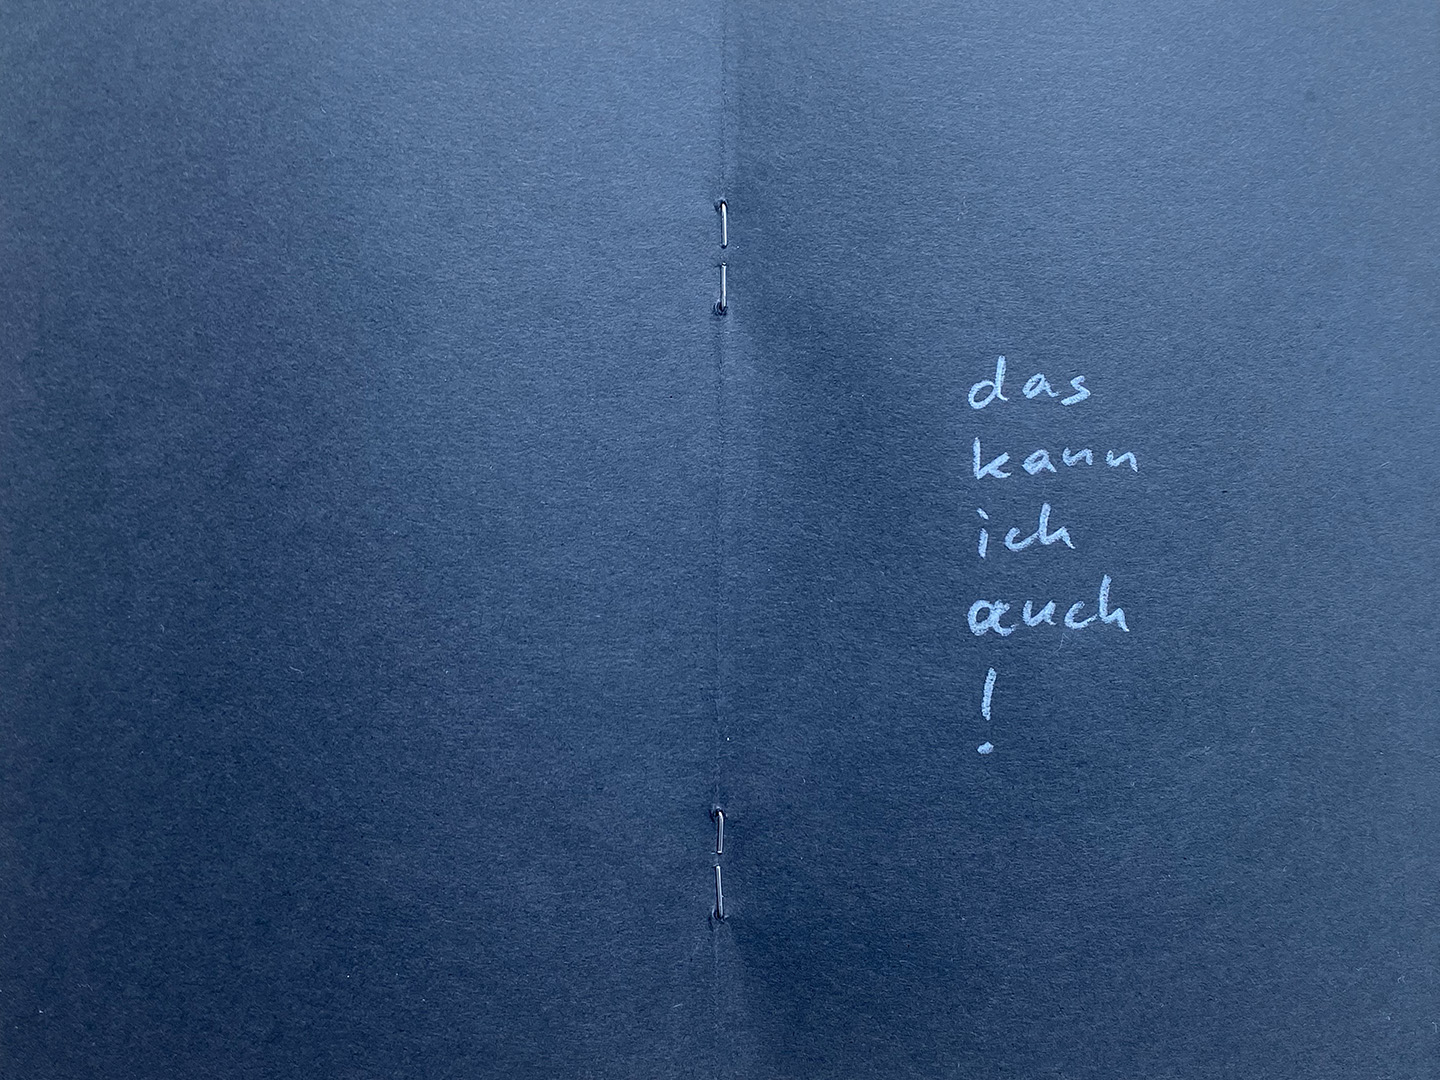 das
kann
ich
auch
!